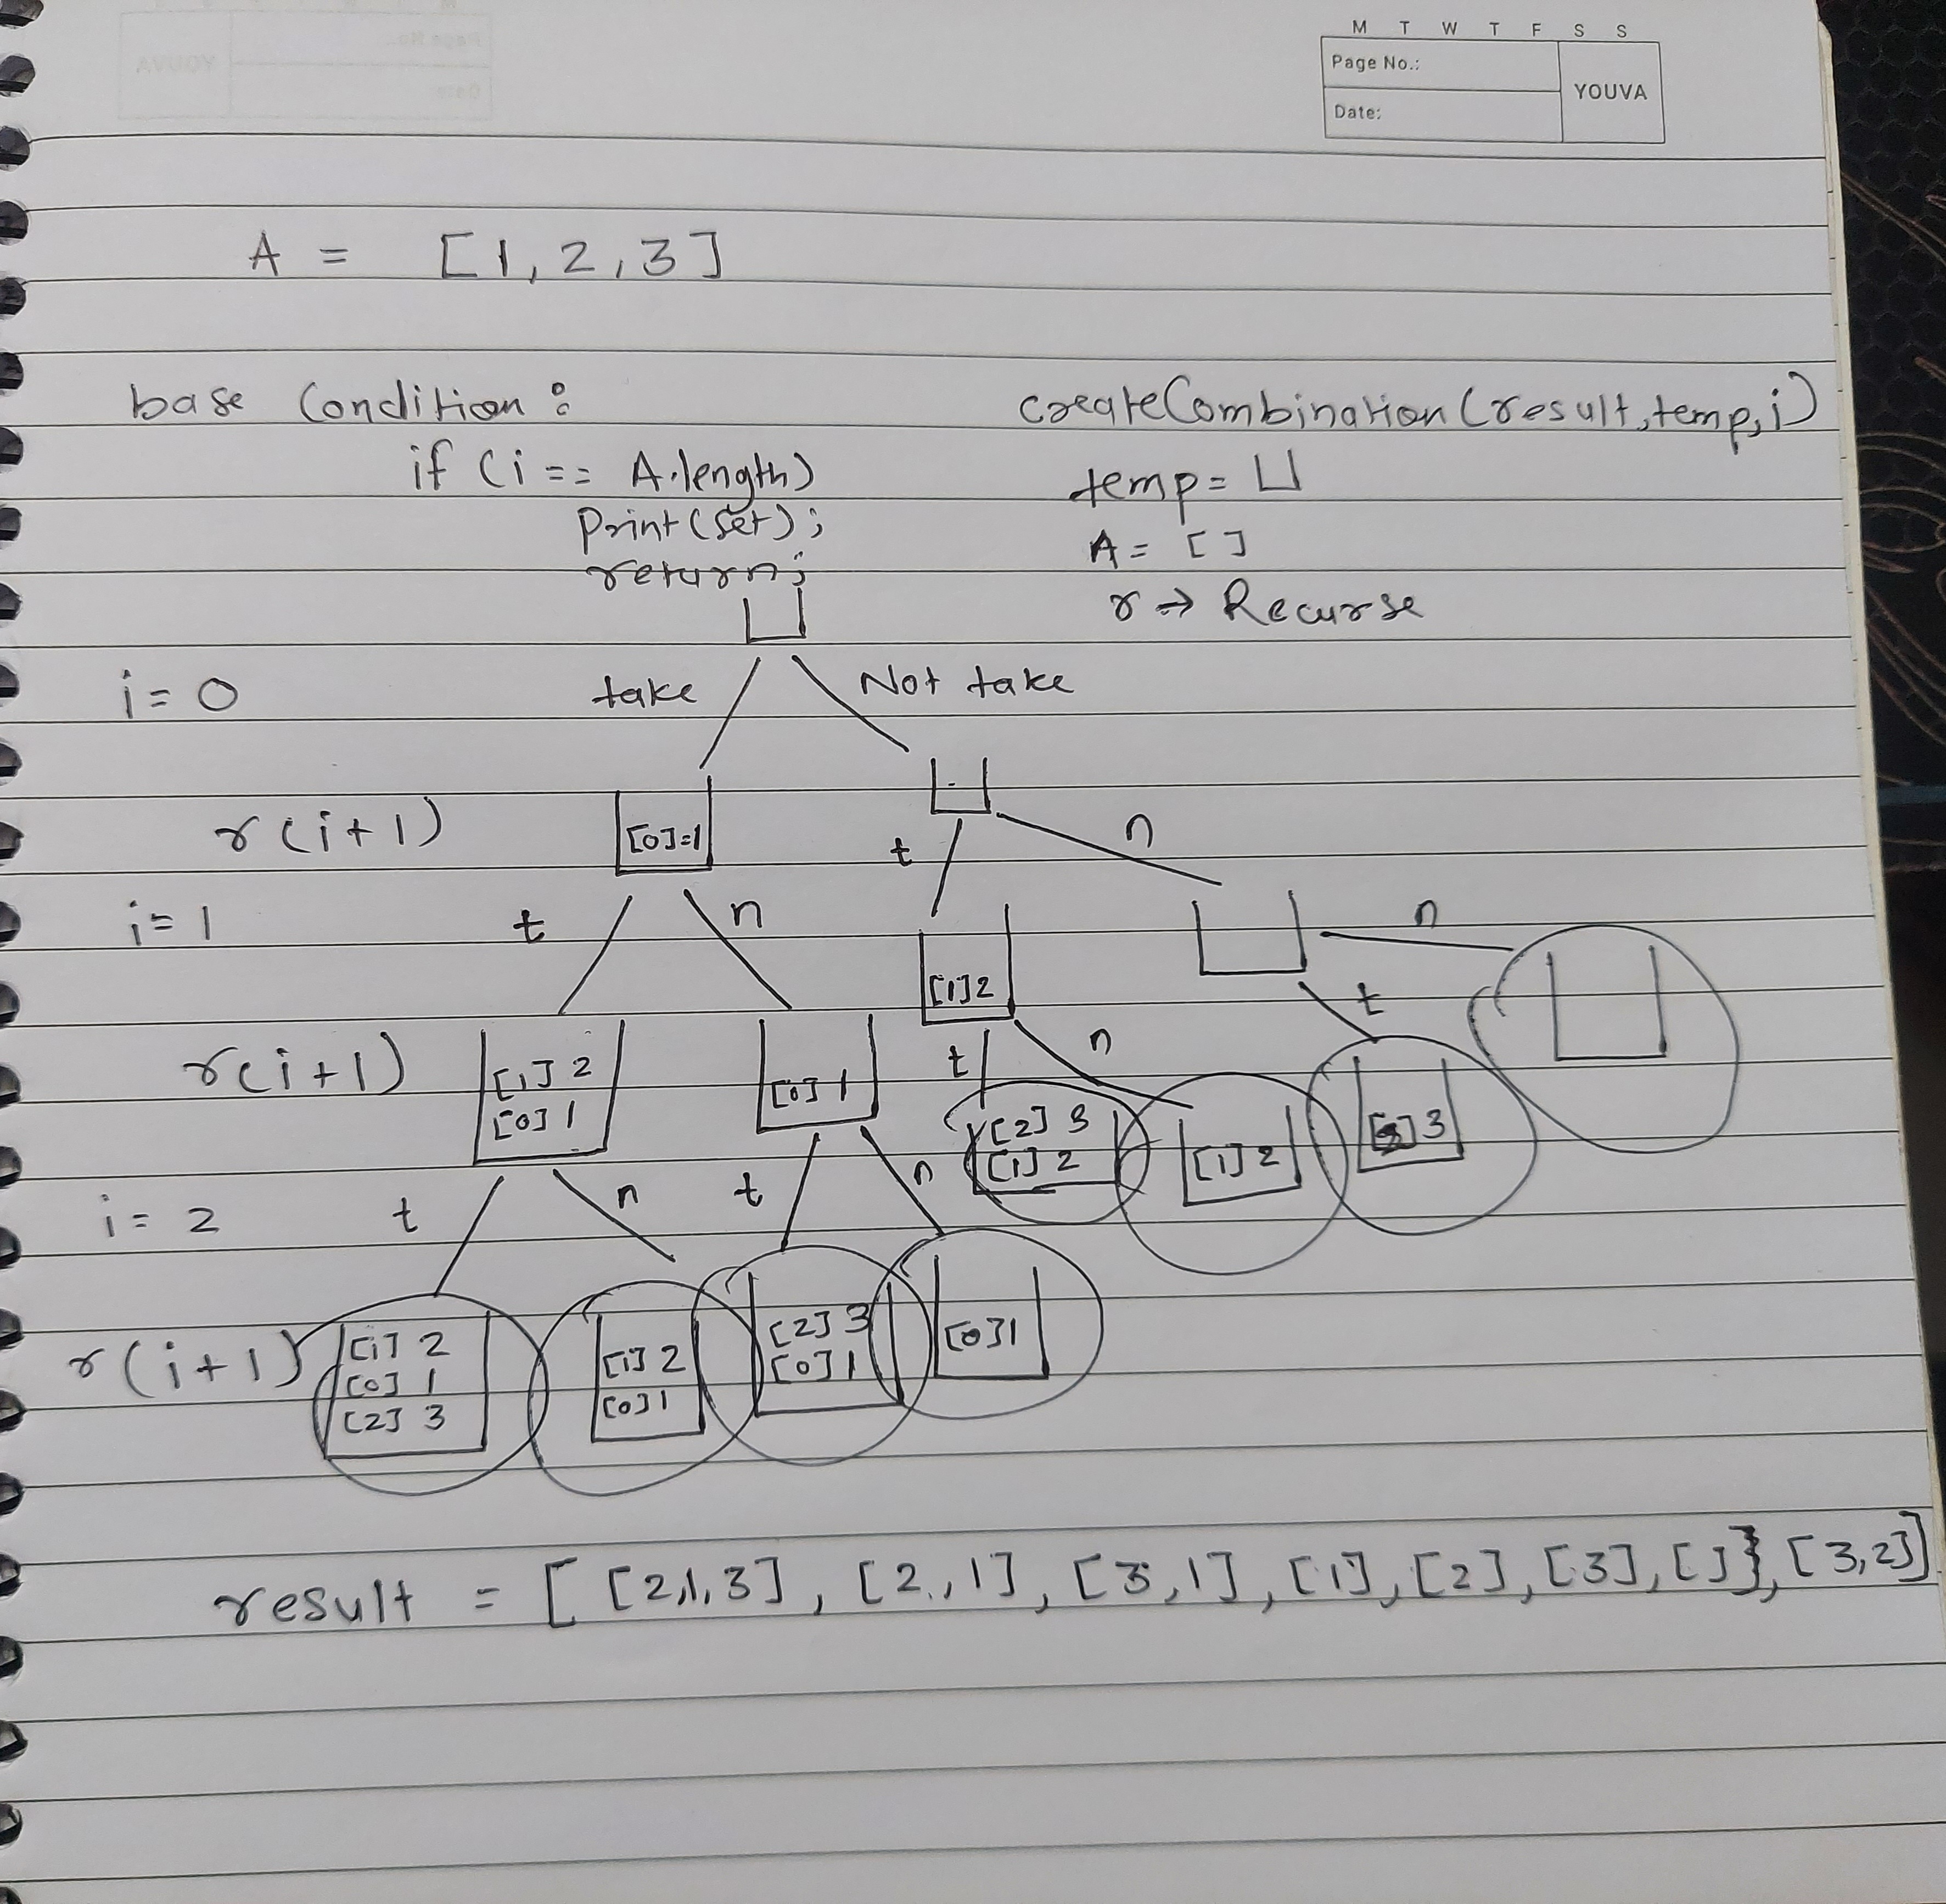 M T W T F S S
Page No.:
YOUVA
Date:
A = [1,2,3]
base Condition:
if (i == A.length)
Print(set);
return;
createCombination(result,temp,i)
temp= ⊔
A= []
r → Recurse
i=0
take
Not take
r(i+1)
[0]=1
t
n
i=1
t
n
[1]2
n
r(i+1)
[1] 2
[0] 1
[0] 1
t
n
t
[2] 3
[1] 2
[1] 2
3
i= 2
t
n
t
n
r(i+1)
[1] 2
[0] 1
[2] 3
[1] 2
[0] 1
[2] 3
[0] 1
[0] 1
result = [ [2,1,3], [2,1], [3,1], [1], [2], [3], [], [3,2]]